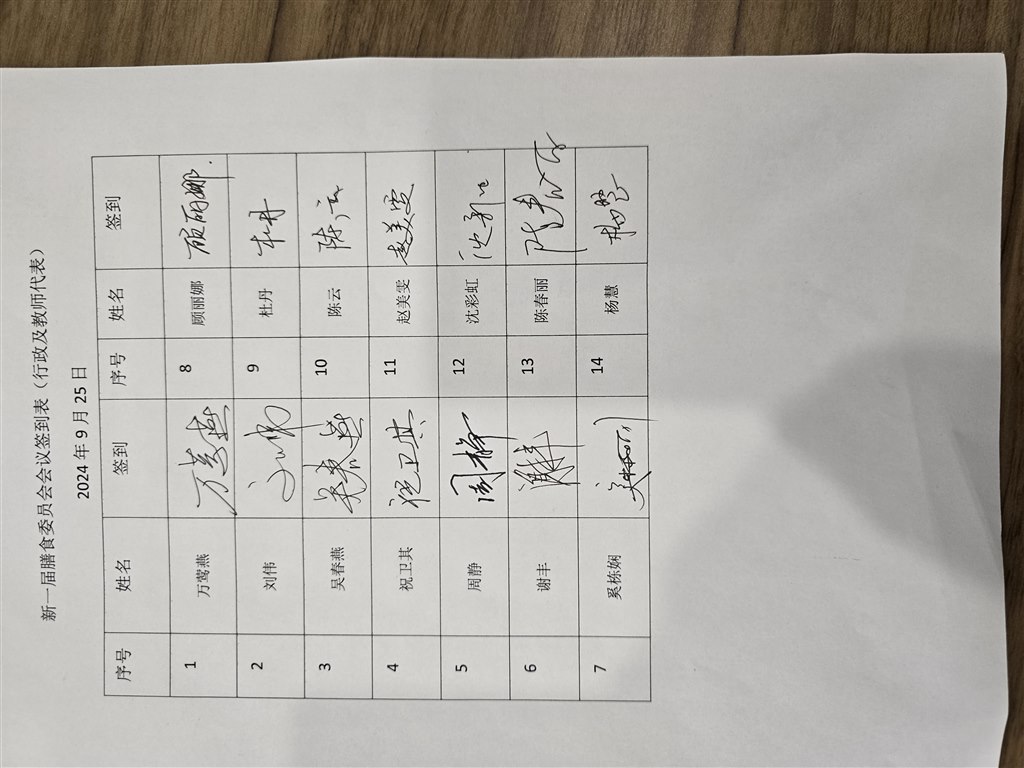 新一届膳食委员会会议签到表（行政及教师代表）
2024年9月25日
序号 姓名 签到 序号 姓名 签到
1 万莺燕 万莺燕 8 顾丽娜 顾丽娜
2 刘伟 刘伟 9 杜丹 杜丹
3 吴春燕 吴春燕 10 陈云 陈云
4 祝卫其 祝卫其 11 赵美雯 赵美雯
5 周静 周静 12 沈彩虹 沈彩虹
6 谢丰 谢丰 13 陈春丽 陈春丽
7 奚栋娴 14 杨慧 杨慧